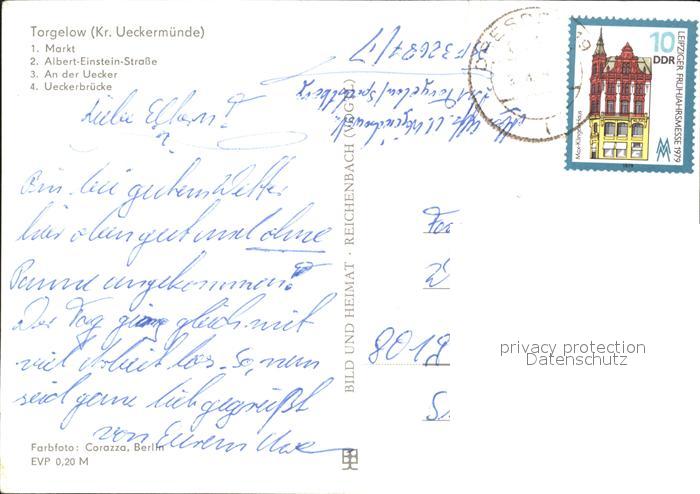 Torgelow (Kr. Ueckermünde)
1. Markt
2. Albert-Einstein-Straße
3. An der Uecker
4. Ueckerbrücke
Liebe Eltern!
Bin bei gutem Wetter
hier oben gut und ohne
Panne angekommen.
Der Tag ging gleich mit
viel Arbeit los. So, nun
seid ganz lieb gegrüßt
von Eurem Uwe
Farbfoto: Corazza, Berlin
EVP 0,20 M
BILD UND HEIMAT · REICHENBACH (VOGTL)
10
DDR
LEIPZIGER FRÜHJAHRSMESSE 1979
Max-Klinger-Haus
1979
8019
privacy protection
Datenschutz